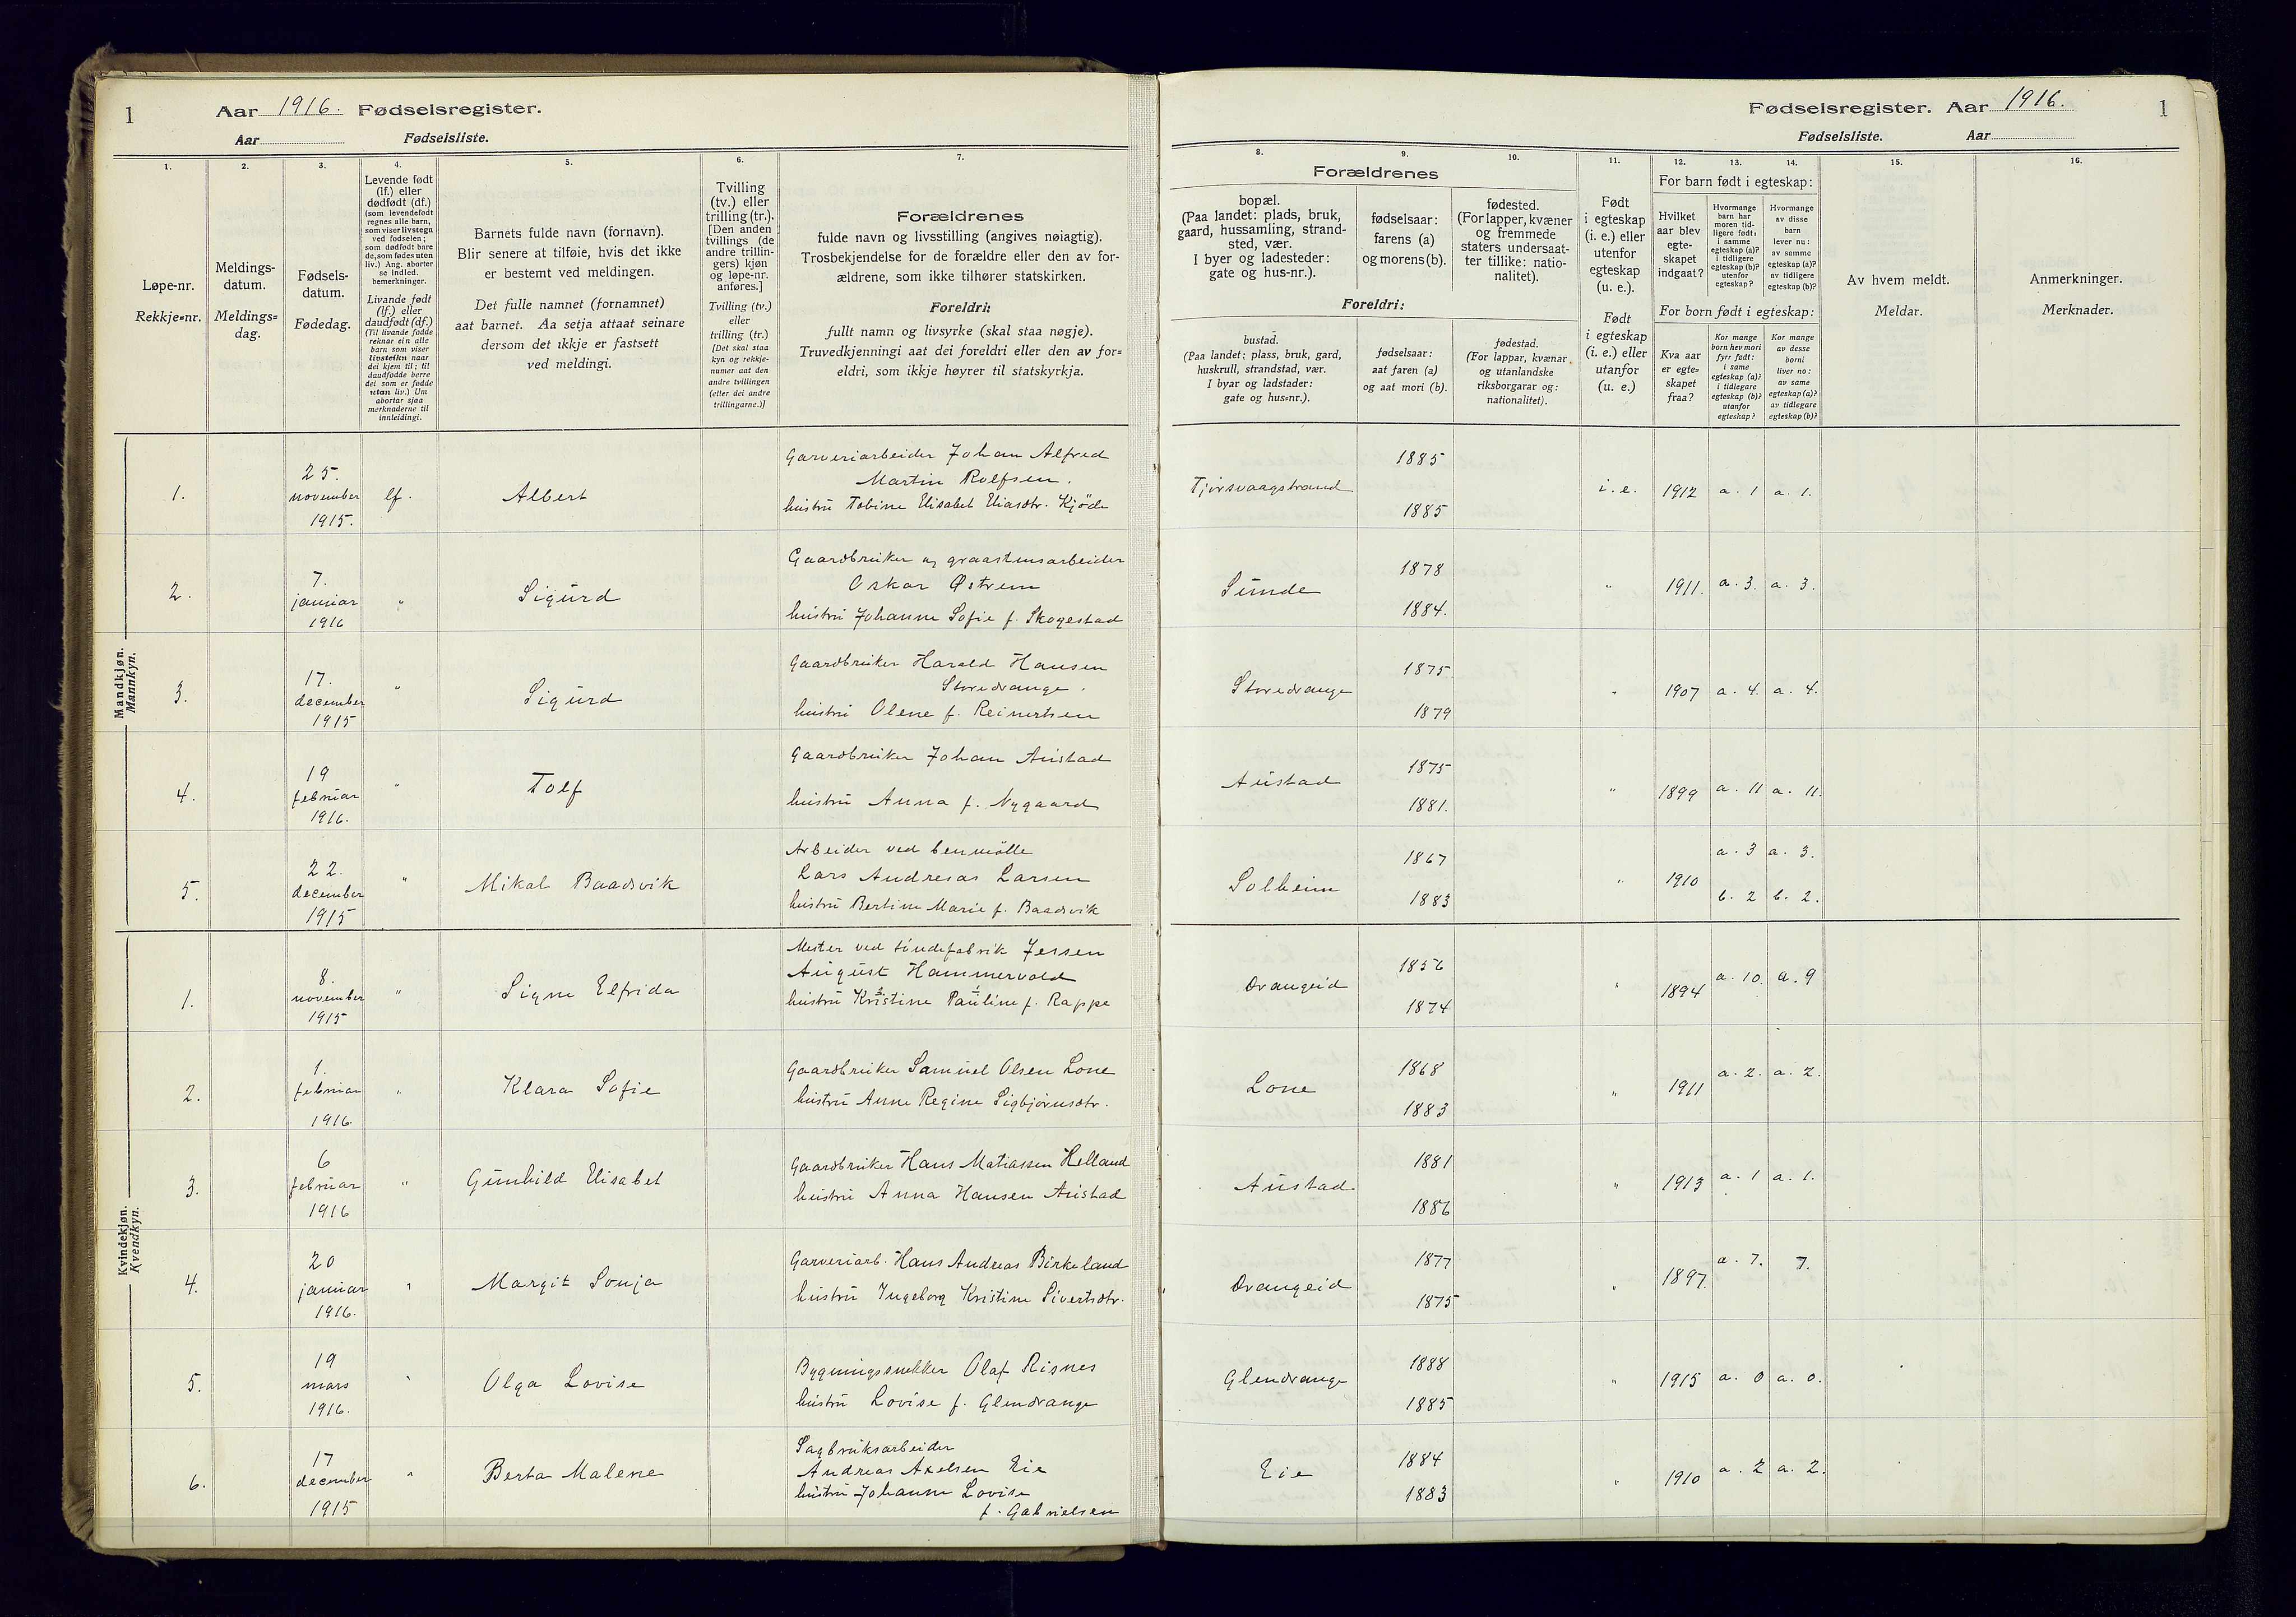 1
Aar 1916. Fødselsregister.
Aar Fødselsliste.
1.
2.
3.
4.
5.
6.
7.
Løpe-nr.
Rekkje=nr.
Meldings-
datum.
Meldings=
dag.
Fødsels-
datum.
Fødedag.
Levende født
(lf.) eller
dødfødt (df.)
(som levendefødt
regnes alle barn,
som viser livstegn
ved fødselen;
som dødfødt bare
de, som fødes uten
liv.) Ang. aborter
se indled.
bemerkninger.
Livande født
(lf.) eller
daudfødt (df.)
(Til livande fødde
reknar ein alle
barn som viser
livsteikn naar
dei kjem til; til
daudfødde berre
dei som er fødde
utan liv.) Um
abortar sjaa
merknaderne til
innleidingi.
Barnets fulde navn (fornavn).
Blir senere at tilføie, hvis det ikke
er bestemt ved meldingen.
Det fulle namnet (fornamnet)
aat barnet. Aa setja attaat seinare
dersom det ikkje er fastsett
ved meldingi.
Tvilling
(tv.) eller
trilling (tr.).
[Den anden
tvillings (de
andre trillin-
gers) kjøn
og løpe-nr.
anføres.]
Tvilling (tv.)
eller
trilling (tr.)
[Det skal staa
kyn og rekkje-
numer aat den
andre tvillingen
(eller dei andre
trillingarne.)]
Forældrenes
fulde navn og livsstilling (angives nøiagtig).
Trosbekjendelse for de forældre eller den av for-
ældrene, som ikke tilhører statskirken.
Foreldri:
fullt namn og livsyrke (skal staa nøgje).
Truvedkjenningi aat dei foreldri eller den av for=
eldri, som ikkje høyrer til statskyrkja.
Fødselsregister. Aar 1916.
1
Fødselsliste. Aar
8.
9.
10.
11.
12.
13.
14.
15.
16.
Forældrenes
bopæl.
(Paa landet: plads, bruk,
gaard, hussamling, strand-
sted, vær.
I byer og ladesteder:
gate og hus-nr.).
fødselsaar:
farens (a)
og morens (b).
fødested.
(For lapper, kvæner
og fremmede
staters undersaat-
ter tillike: natio-
nalitet).
Foreldri:
bustad.
(Paa landet; plass, bruk, gard,
huskrull, strandstad, vær.
I byar og ladstader:
gate og hus=nr.).
fødselsaar:
aat faren (a)
og aat mori (b).
fødestad.
(For lappar, kvænar
og utanlandske
riksborgarar og:
nationalitet).
Født
i egteskap
(i. e.) eller
utenfor
egteskap
(u. e.).
Født
i egteskap
(i. e.) eller
utanfor
(u. e.)
For barn født i egteskap:
Hvilket
aar blev
egte-
skapet
indgaat?
Hvormange
barn har
moren tid-
ligere født:
i samme
egteskap (a)?
i tidligere
egteskap (b)?
utenfor
egteskap?
Hvormange
av disse
barn
lever nu:
av samme
egteskap (a)?
av tidligere
egteskap (b)?
For born født i egteskap:
Kva aar
er egte=
skapet
fraa?
Kor mange
born hev mori
fyrr født:
i same
egteskap (a)?
i tidlegare
egteskap (b)?
utanfor
egteskap?
Kor mange
av desse
borni
liver no:
av same
egteskap (a)?
av tidlegare
egteskap (b)?
Av hvem meldt.
Meldar.
Anmerkninger.
Merknader.
Mandkjøn.
Mannkyn.
1.
25.
november
1915.
lf.
Albert
Garveriarbeider Johan Alfred
Martin Rolfsen.
hustru Tobine Elisabet Eliasdtr. Kjöde
Tjörsvaagstrand
1885
1885
i. e.
1912
a. 1
a. 1.
2.
7.
januar
1916
"
Sigurd
Gaardbruker og graastensarbeider
Oskar Østrem
hustru Johanne Sofie f. Skogestad
Sunde
1878
1884.
"
1911.
a. 3.
a. 3.
3.
17.
december
1915
"
Sigurd
Gaardbruker Harald Hansen
Storedrange.
hustru Olene f. Reinertsen
Storedrange
1875
1879
"
1907
a. 4.
a. 4.
4.
19
februar
1916.
"
Tolf
Gaardbruker Johan Austad
hustru Anna f. Nygaard
Austad
1875
1881.
"
1899
a. 11
a. 11.
5.
22.
december
1915
"
Mikal Baadsvik
Arbeider ved benmölle
Lars Andreas Larsen
hustru Bertine Marie f. Baadsvik
Solheim
1867
1883
"
1910
a. 3
a. 3.
b. 2
b. 2.
Kvindekjøn.
Kvendkyn.
1.
8.
november
1915
"
Signe Elfrida
Mester ved töndefabrik Jessen
August Hammervold
hustru Kristine Pauline f. Rappe
Drangeid
1856
1874
"
1894
a. 10.
a. 9
2.
1.
februar
1916.
"
Klara Sofie
Gaardbruker Samuel Olsen Lone
hustru Anne Regine Sigbjörnsdtr.
Lone
1868
1883
"
1911
a. 2.
a. 2.
3.
6
februar
1916
"
Gunhild Elisabet
Gaardbruker Hans Matiassen Helland
hustru Anna Hansen Austad
Austad
1881
1886
"
1913
a. 1
a. 1.
4.
20
januar
1916.
"
Margit Sonja
Garveriarb. Hans Andreas Birkeland
hustru Ingeborg Kristine Sivertsdtr.
Drangeid
1877
1875
"
1897.
a. 7.
7.
5.
19
mars
1916.
"
Olga Lovise
Bygningssnekker Olaf Risnes
hustru Lovise f. Glendrange
Glendrange
1888
1885
"
1915
a. 0
a. 0.
6.
17
december
1915
"
Berta Malene
Sagbruksarbeider
Andreas Axelsen Eie
hustru Johanne Lovise
f. Gabrielsen
Eie
1884
1883
"
1910
a. 2
a. 2.